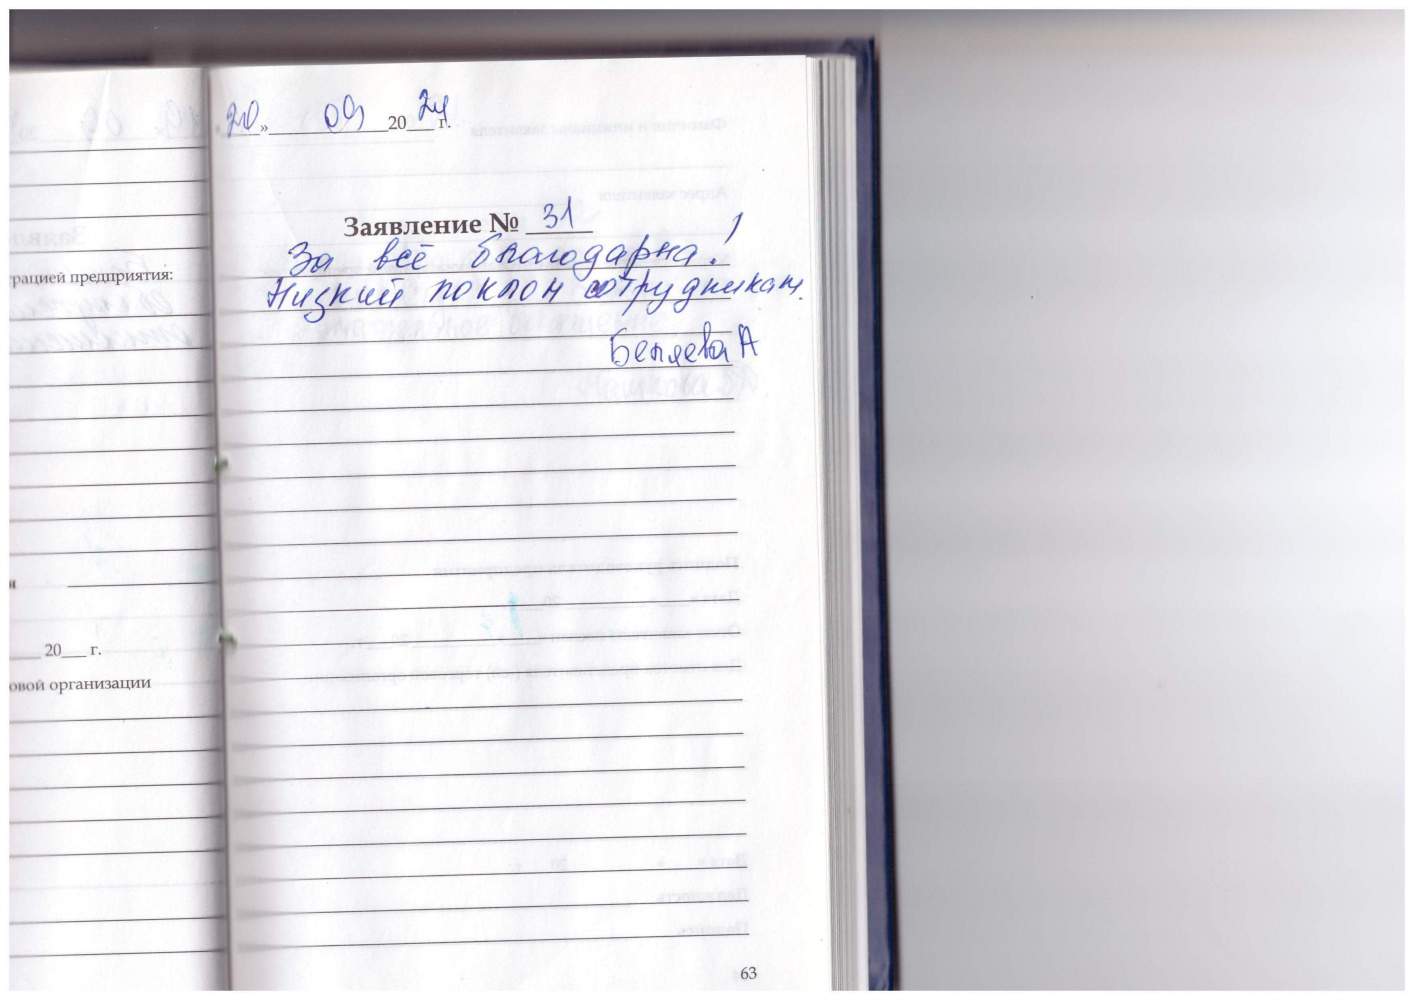 20» 09 2024 г.
Заявление № 31
За всё благодарна!
Низкий поклон сотрудникам.
Беляева А
трацией предприятия:
20 г.
овой организации
63